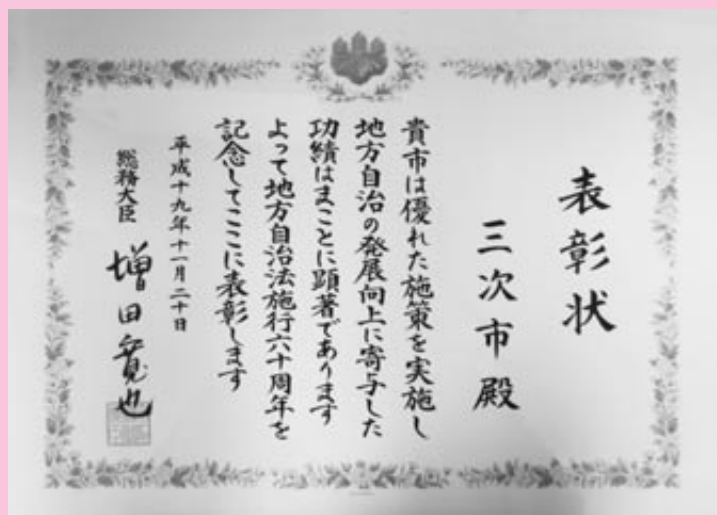 表彰状
三次市殿
貴市は優れた施策を実施し
地方自治の発展向上に寄与した
功績はまことに顕著であります
よって地方自治法施行六十周年を
記念してここに表彰します
平成十九年十一月二十日
総務大臣 増田寛也